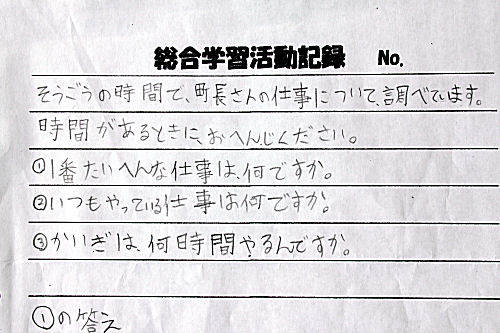 総合学習活動記録 No.
そうごうの時間で、町長さんの仕事について、調べています。
時間があるときに、おへんじください。
①1番たいへんな仕事は、何ですか。
②いつもやっている仕事は何ですか。
③かいぎは、何時間やるんですか。
①の答え